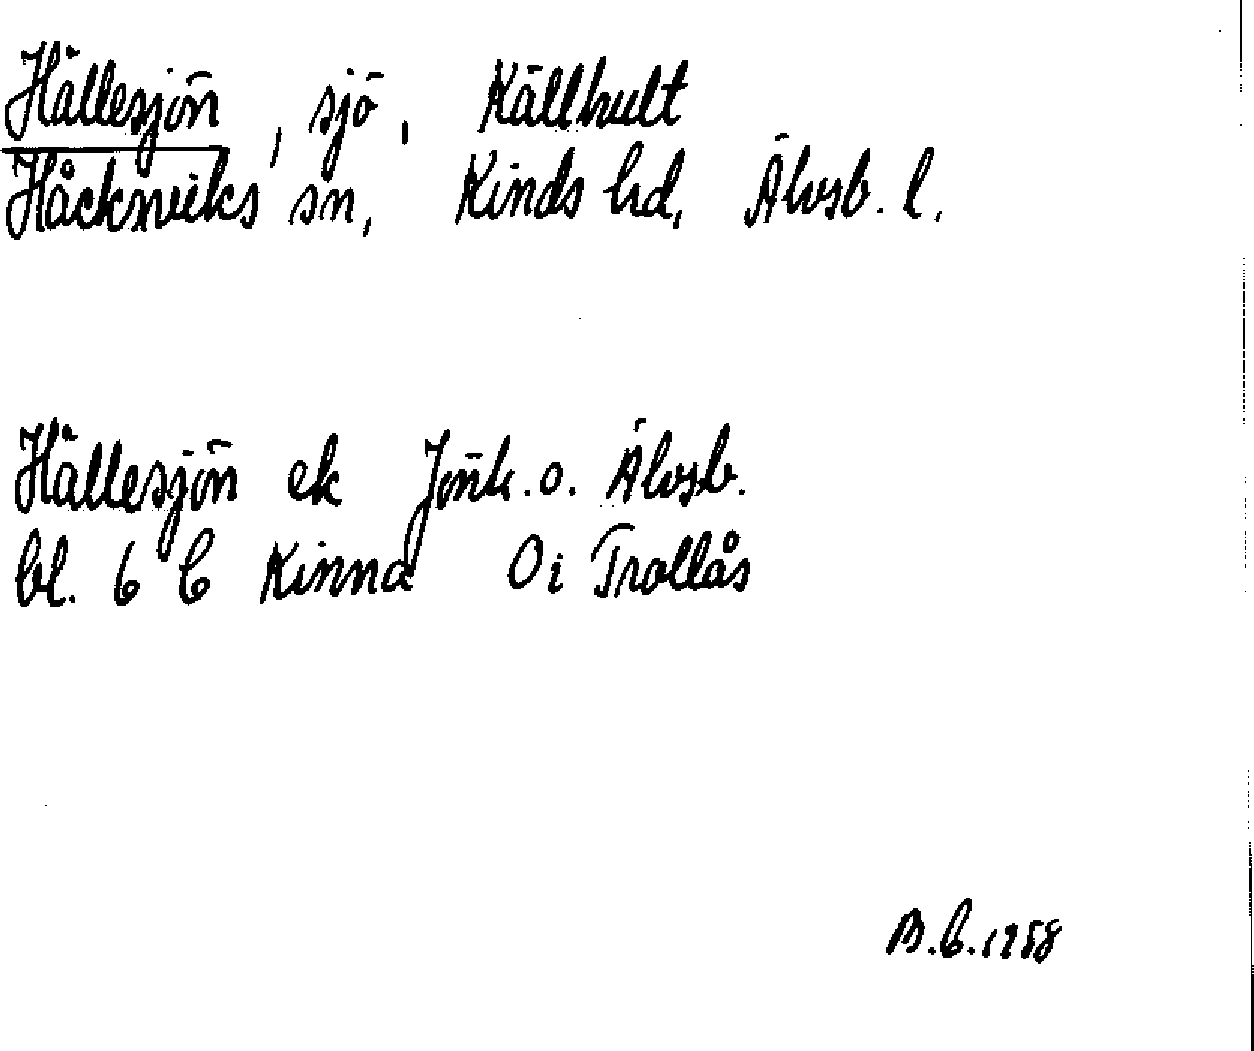 Hällesjön, sjö, Källhult
Håcksviks sn, Kinds hd, Älvsb. l.
Hällesjön ek Jönk. o. Älvsb.
bl. 6 C Kinna Oi Trollås
B.C. 1958